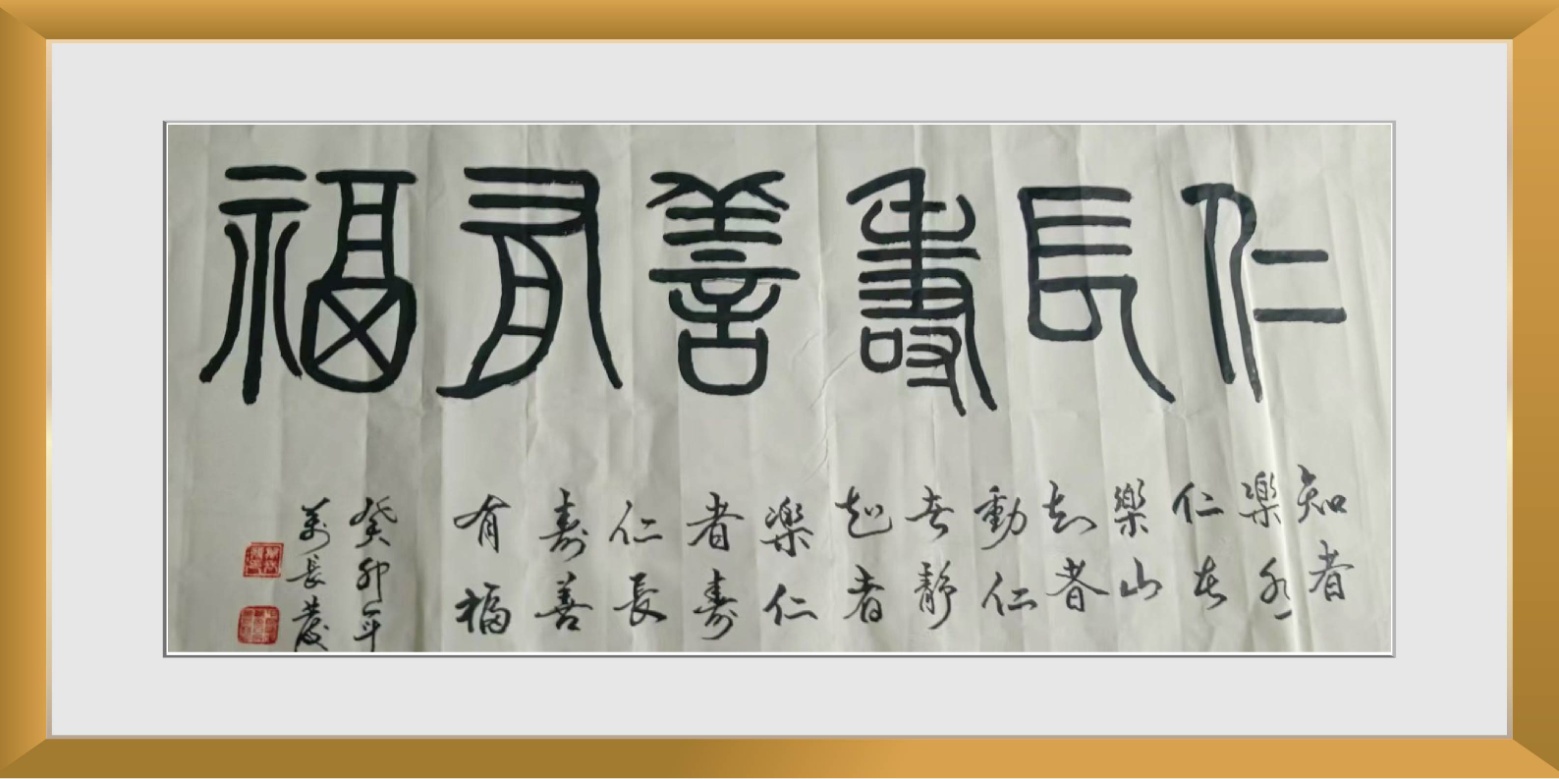 仁長壽善有福
知者
樂水
仁者
樂山
知者
動仁
者靜
知者
樂仁
者寿
仁長
寿善
有福
癸卯年
萬長